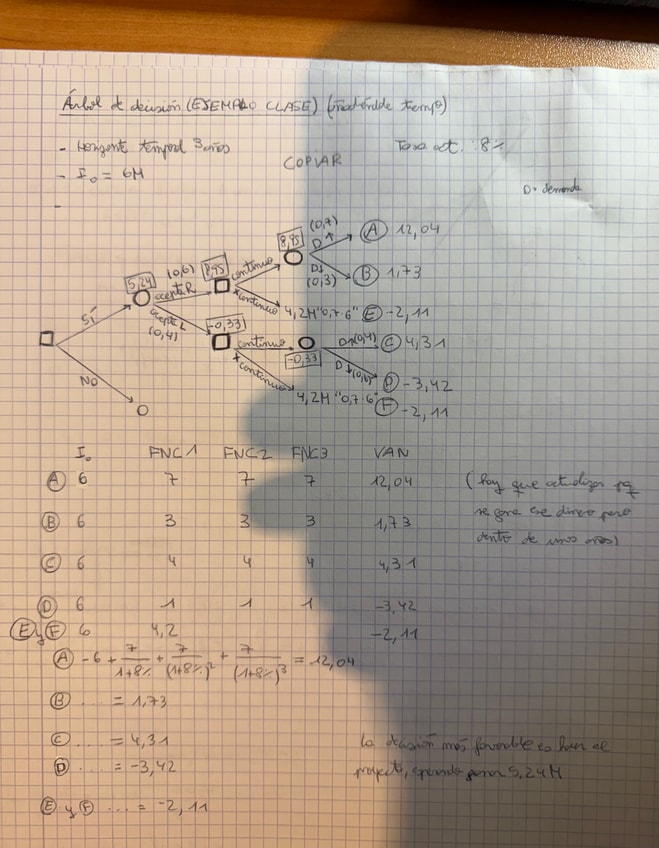 Árbol de decisión (EJEMPLO CLASE) (
- Horizonte temporal 3 años
Tasa act. : 8%
COPIAR
- I₀ = 6M
D = demanda
-
SÍ
NO
5,24
(0,6)
acepta R
acepta L
(0,4)
8,95
continuo
x continuo
8,95
(0,7)
D↑
A 12,04
D↓
(0,3)
B 1,73
4,2M "0,7·6" E -2,11
-0,33
continuo
x continuo
-0,33
D↑(0,4)
C 4,31
D↓(0,6)
D -3,42
4,2M "0,7·6" F -2,11
I₀ FNC1 FNC2 FNC3 VAN
A 6 7 7 7 12,04
B 6 3 3 3 1,73
C 6 4 4 4 4,31
D 6 1 1 1 -3,42
E y F 6 4,2 -2,11
(hay que actualizar pq
se gana ese dinero pero
dentro de unos años)
A -6 + 7/(1+8%) + 7/(1+8%)² + 7/(1+8%)³ = 12,04
B .... = 1,73
C .... = 4,31
D .... = -3,42
E y F ... = -2,11
La decisión más favorable es hacer el
proyecto, esperando ganar 5,24M